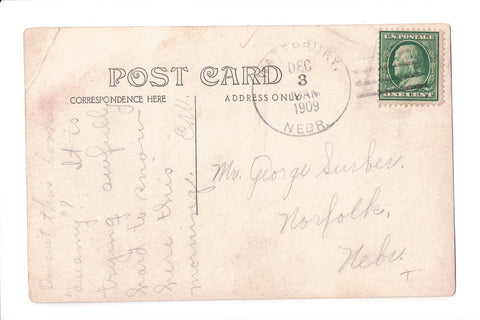 POST CARD
CORRESPONDENCE HERE
ADDRESS ONLY
TERBURY,
DEC
3
AM
1909
NEBR.
U.S. POSTAGE
ONE CENT
Doesn't this look
"dreamy"? It is
trying awfully
hard to snow
here this
morning.
Mr. George Surber.
Norfolk,
Nebr.